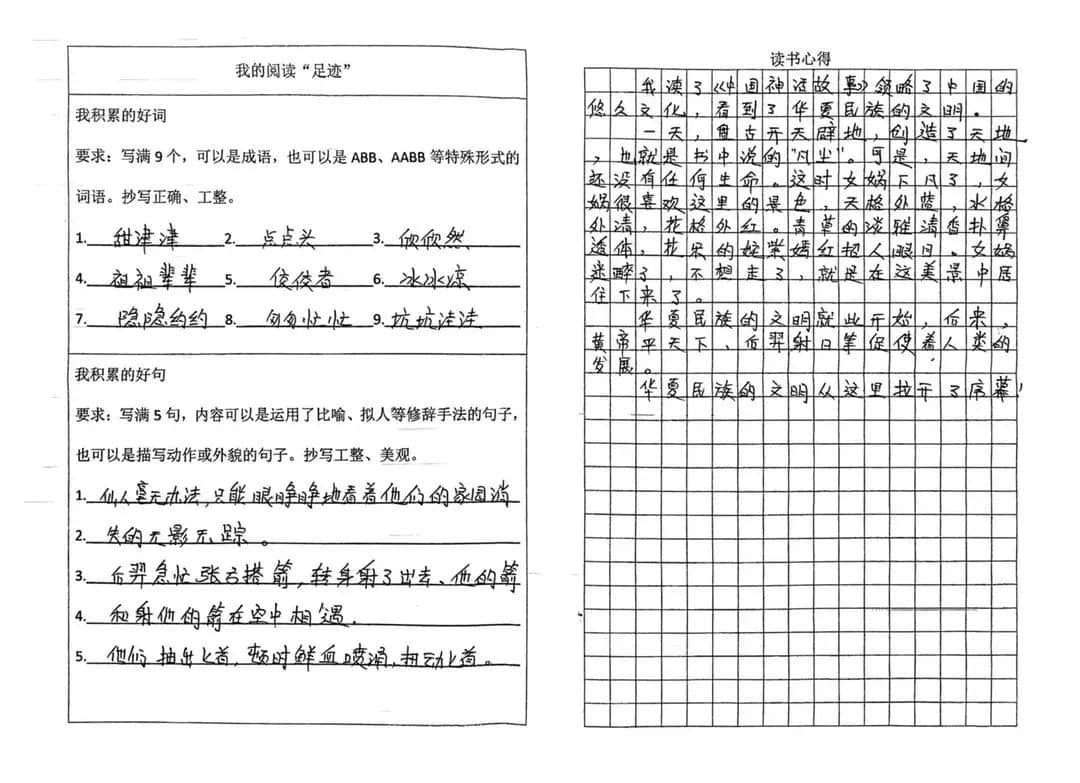 我的阅读“足迹”
我积累的好词
要求：写满 9 个，可以是成语，也可以是 ABB、AABB 等特殊形式的
词语。抄写正确、工整。
1. 甜津津 2. 点点头 3. 欣欣然
4. 祖祖辈辈 5. 佼佼者 6. 冰冰凉
7. 隐隐约约 8. 匆匆忙忙 9. 坑坑洼洼
我积累的好句
要求：写满 5 句，内容可以是运用了比喻、拟人等修辞手法的句子，
也可以是描写动作或外貌的句子。抄写工整、美观。
1. 仙人毫无办法，只能眼睁睁地看着他们的家园消
2. 失的无影无踪。
3. 后羿急忙张弓搭箭，转身射了出去、他的箭
4. 和射他的箭在空中相遇.
5. 他们抽出匕首，顿时鲜血喷涌，扭动匕首。
读书心得
我读了《中国神话故事》领略了中国的
悠久文化，看到了华夏民族的文明。
一天，盘古开天辟地，创造了天地
，也就是书中说的“凡尘”。可是，天地间
还没有任何生命。这时女娲下凡了，女
娲很喜欢这里的景色，天格外蓝，水格
外清，花格外红。青草的淡雅清香扑鼻
透体，花朵的姹紫嫣红招人眼目。女娲
迷醉了，不想走了，就是在这美景中居
住下来了。
华夏民族的文明就此开始，后来，
黄帝平天下、后羿射日等促使着人类的
发展。
华夏民族的文明从这里拉开了序幕！